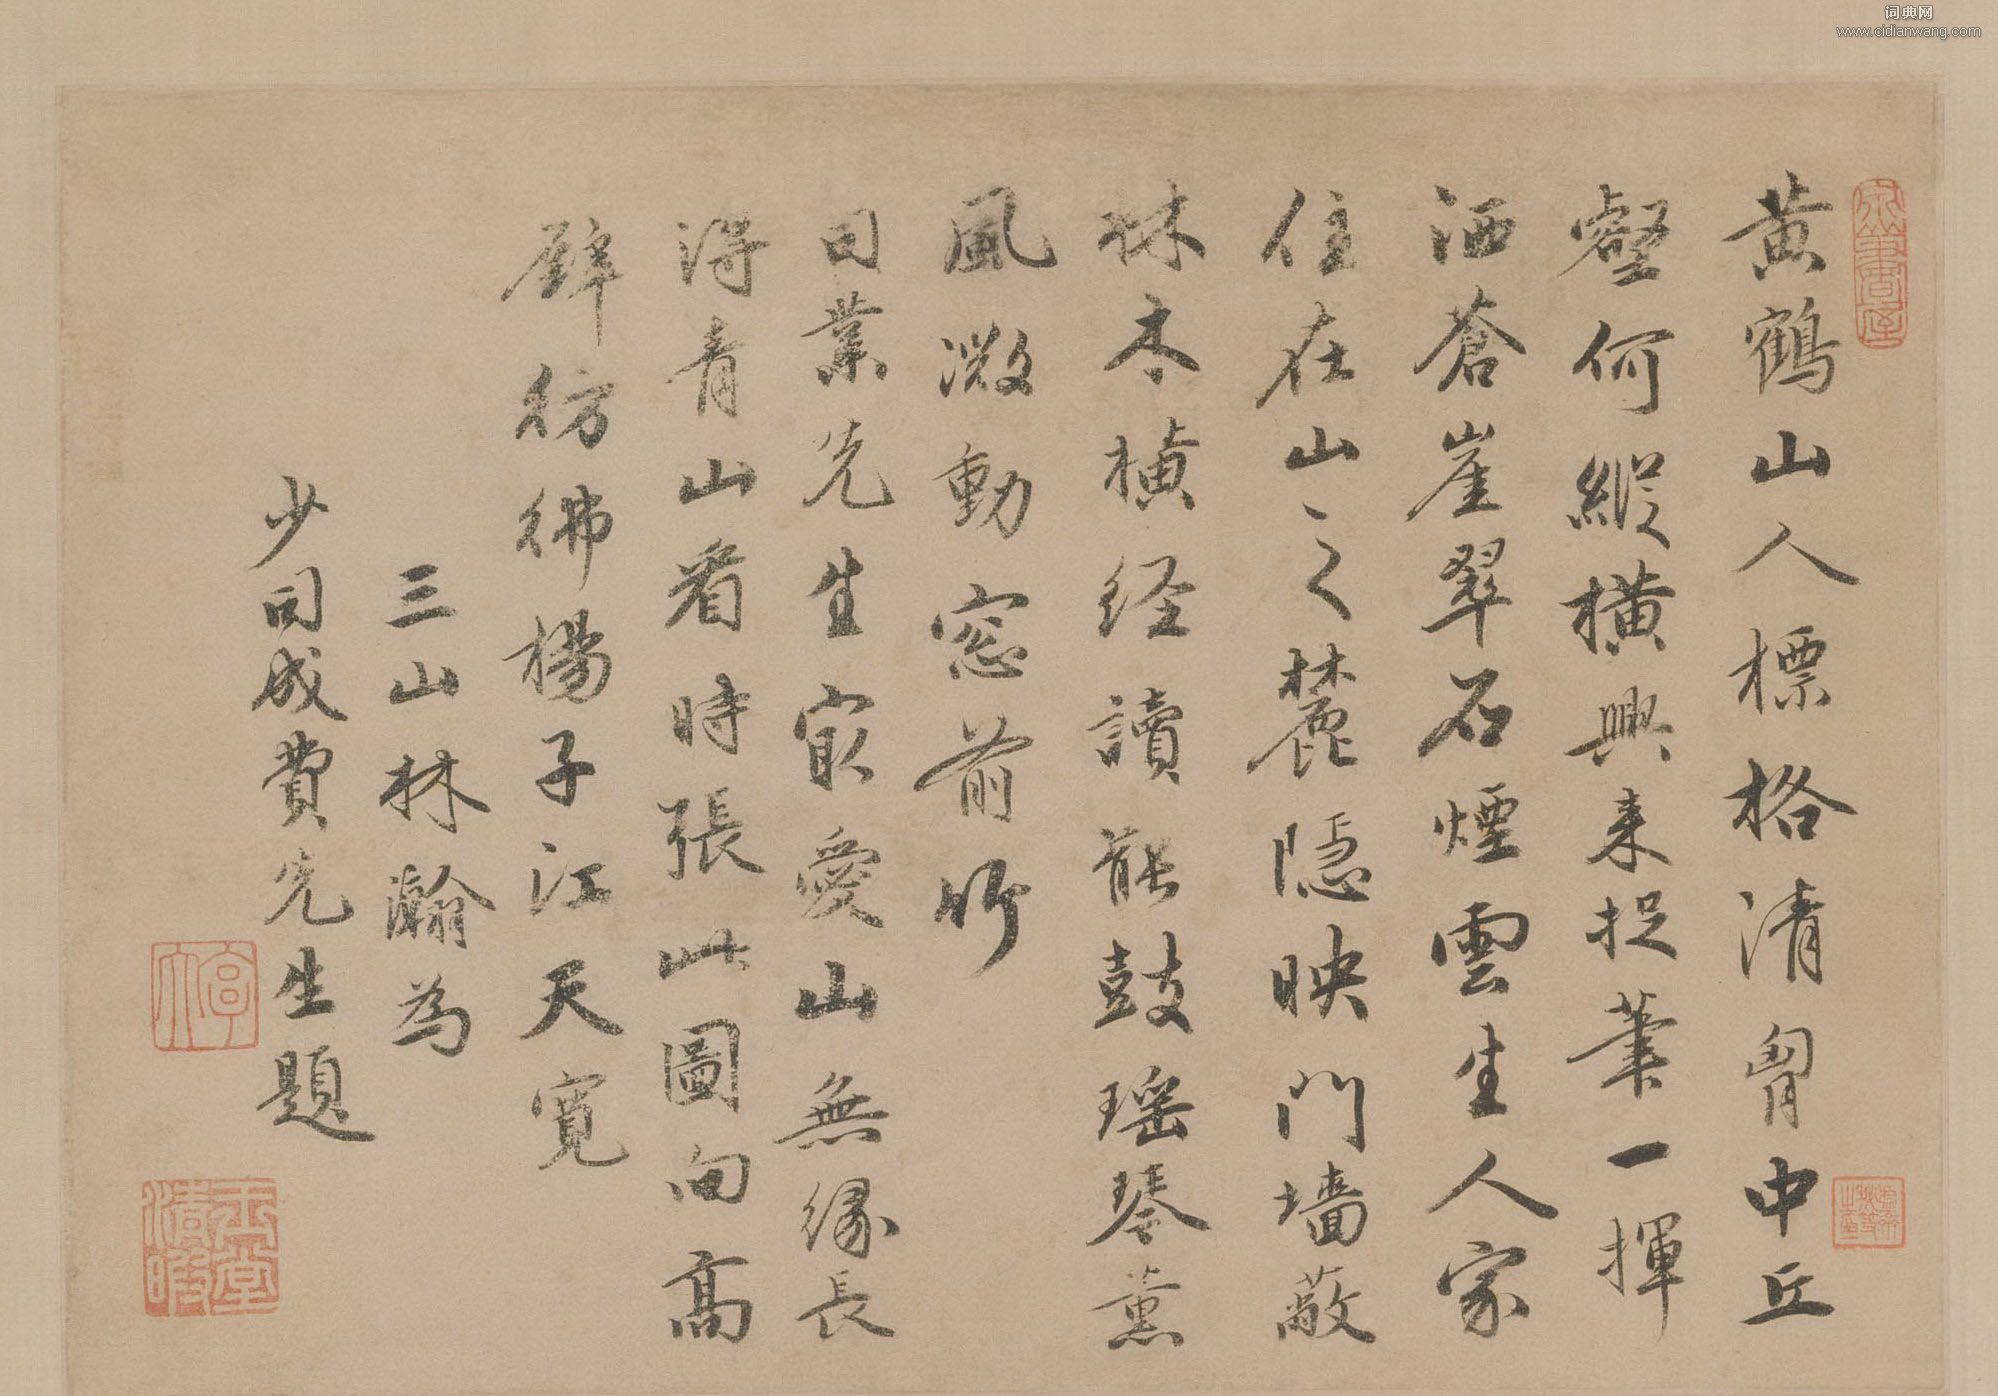 黄鶴山人標格清胷中丘
壑何縱橫興来捉筆一揮
洒蒼崖翠石煙雲生人家
住在山之麓隠映門墻蔽
林木横经讀罷鼓瑶琴薰
風微動窓前竹
司業先生最愛山無缘長
得青山看時張此圖向高
壁彷彿楊子江天寛
三山林瀚為
少司成費先生題
玉堂清暇
词典网
www.cidianwang.com